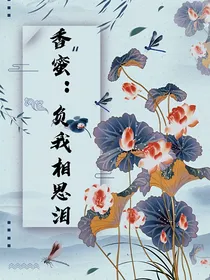 香蜜：负我相思泪